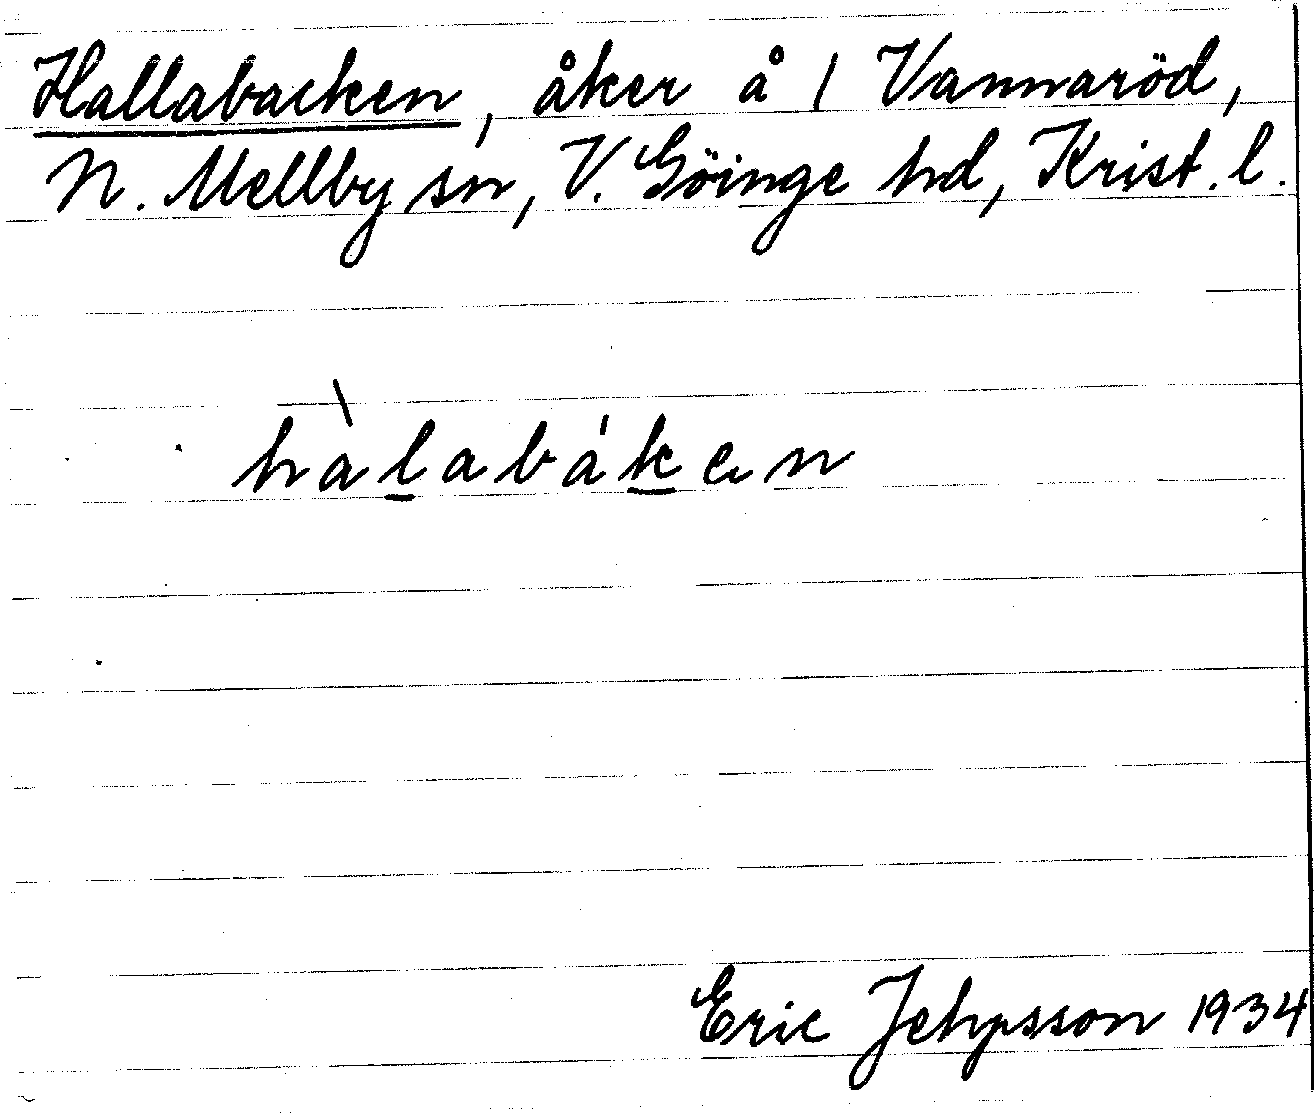 Hallabacken, åker å 1 Vannaröd,
N. Mellby sn, V. Göinge hd, Krist. l.
hàlabáken
Eric Jehpsson 1934